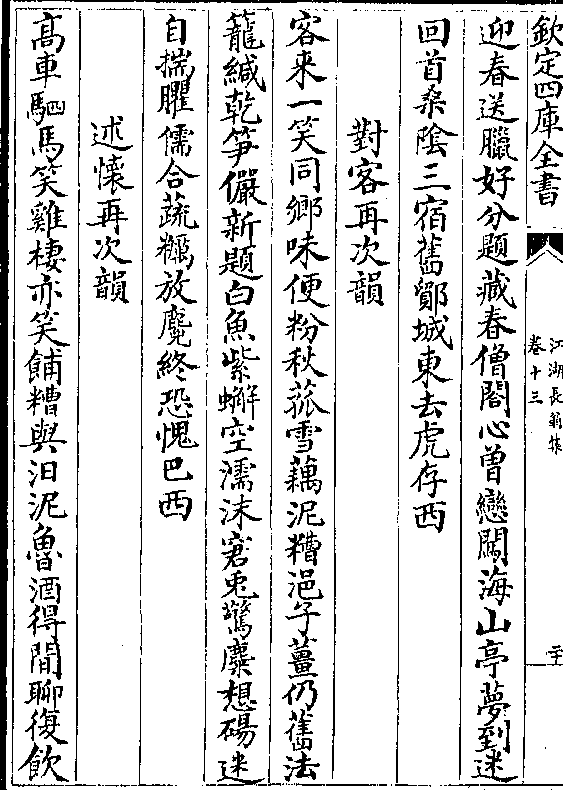 欽定四庫全書
江湖長翁集
卷十三
二十
迎春送臘好分題藏春僧閣心曽戀闞海山亭夢到迷
回首桑陰三宿舊鄮城東去虎存西
對客再次韻
客來一笑同鄉味便粉秋菰雪藕泥糟浥子薑仍舊法
籠緘乾笋儼新題白魚紫蠏空濡沫窘兎驚麋想碭迷
自揣臞儒合蔬糲放麑終恐愧巴西
述懷再次韻
髙車駟馬笑雞棲亦笑餔糟與汨泥魯酒得閒聊復飲